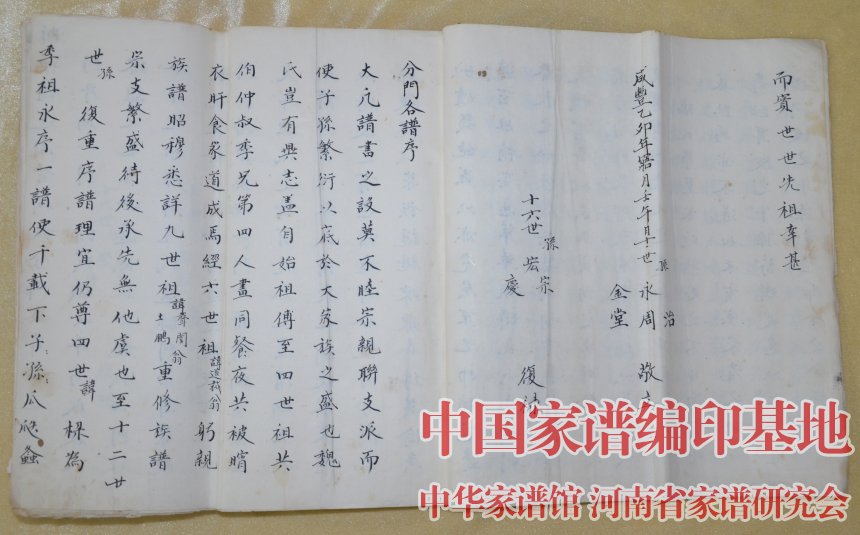 而實世世先祖幸甚
咸豐乙卯年 月壬午月十三世孫 永周 治 金堂 敬
十六世孫 宏宗 慶 復
分門各譜序
大凡譜書之設莫不睦宗親聯支派而
使子孫繁衍以底於大家族之盛也魏
氏豈有異志盖自始祖傳至四世祖共
伯仲叔季兄第四人晝同餐夜共被宵
衣旰食家道成焉經六世祖諱進 翁躬親
族譜昭穆悉詳九世祖諱 聞翁 士鵬重修族譜
宗支繁盛待後承先無他虞也至十二世
世孫復重序譜理宜仍尊四世諱 為
季祖永序一譜便千載下子孫瓜瓞螽
中国家谱编印基地
中华家谱馆 河南省家谱研究会